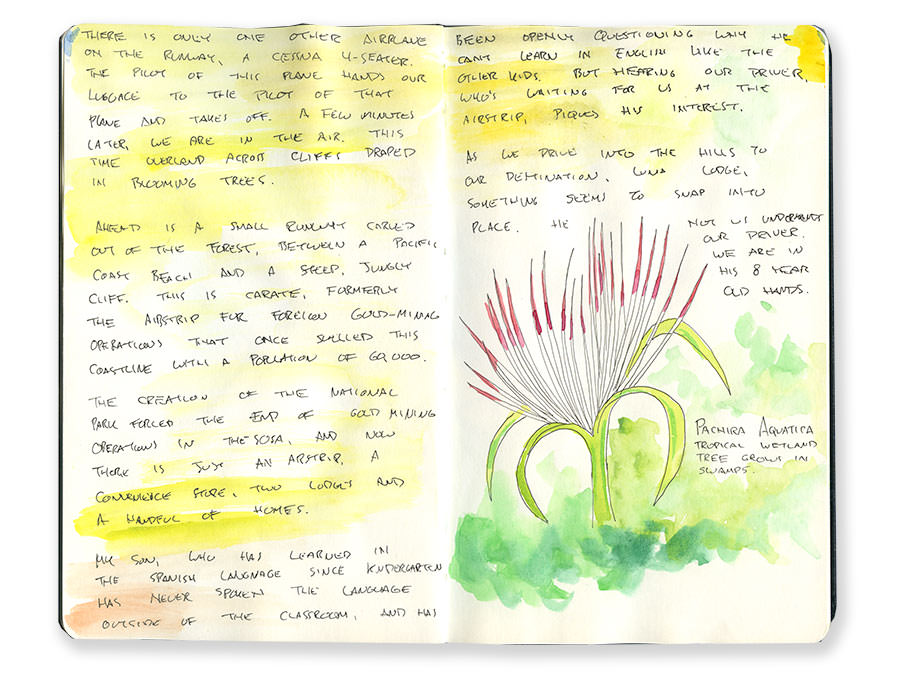 THERE IS ONLY ONE OTHER AIRPLANE
ON THE RUNWAY, A CESSNA 4-SEATER.
THE PILOT OF THIS PLANE HANDS OUR
LUGGAGE TO THE PILOT OF THAT
PLANE AND TAKES OFF. A FEW MINUTES
LATER, WE ARE IN THE AIR. THIS
TIME OVERLAND ACROSS CLIFFS DRAPED
IN BLOOMING TREES.
AHEAD IS A SMALL RUNWAY CARVED
OUT OF THE FOREST, BETWEEN A PACIFIC
COAST BEACH AND A STEEP, JUNGLY
CLIFF. THIS IS CARATE, FORMERLY
THE AIRSTRIP FOR FOREIGN GOLD-MINING
OPERATIONS THAT ONCE SWELLED THIS
COASTLINE WITH A POPULATION OF 60,000.
THE CREATION OF THE NATIONAL
PARK FORCED THE END OF GOLD MINING
OPERATIONS IN THE SOSA, AND NOW
THERE IS JUST AN AIRSTRIP, A
CONVENIENCE STORE, TWO LODGES AND
A HANDFUL OF HOMES.
MY SON, WHO HAS LEARNED IN
THE SPANISH LANGUAGE SINCE KINDERGARTEN
HAS NEVER SPOKEN THE LANGUAGE
OUTSIDE OF THE CLASSROOM, AND HAS
BEEN OPENLY QUESTIONING WHY HE
CANT LEARN IN ENGLISH LIKE THE
OTHER KIDS. BUT HEARING OUR DRIVER,
WHO'S WAITING FOR US AT THE
AIRSTRIP, PIQUES HIS INTEREST.
AS WE DRIVE INTO THE HILLS TO
OUR DESTINATION, LUNA LODGE,
SOMETHING SEEMS TO SNAP INTO
PLACE. HE NOT US UNDERSTANDS
OUR DRIVER.
WE ARE IN
HIS 8 YEAR
OLD HANDS.
PACHIRA AQUATICA
TROPICAL WETLAND
TREE GROWS IN
SWAMPS.